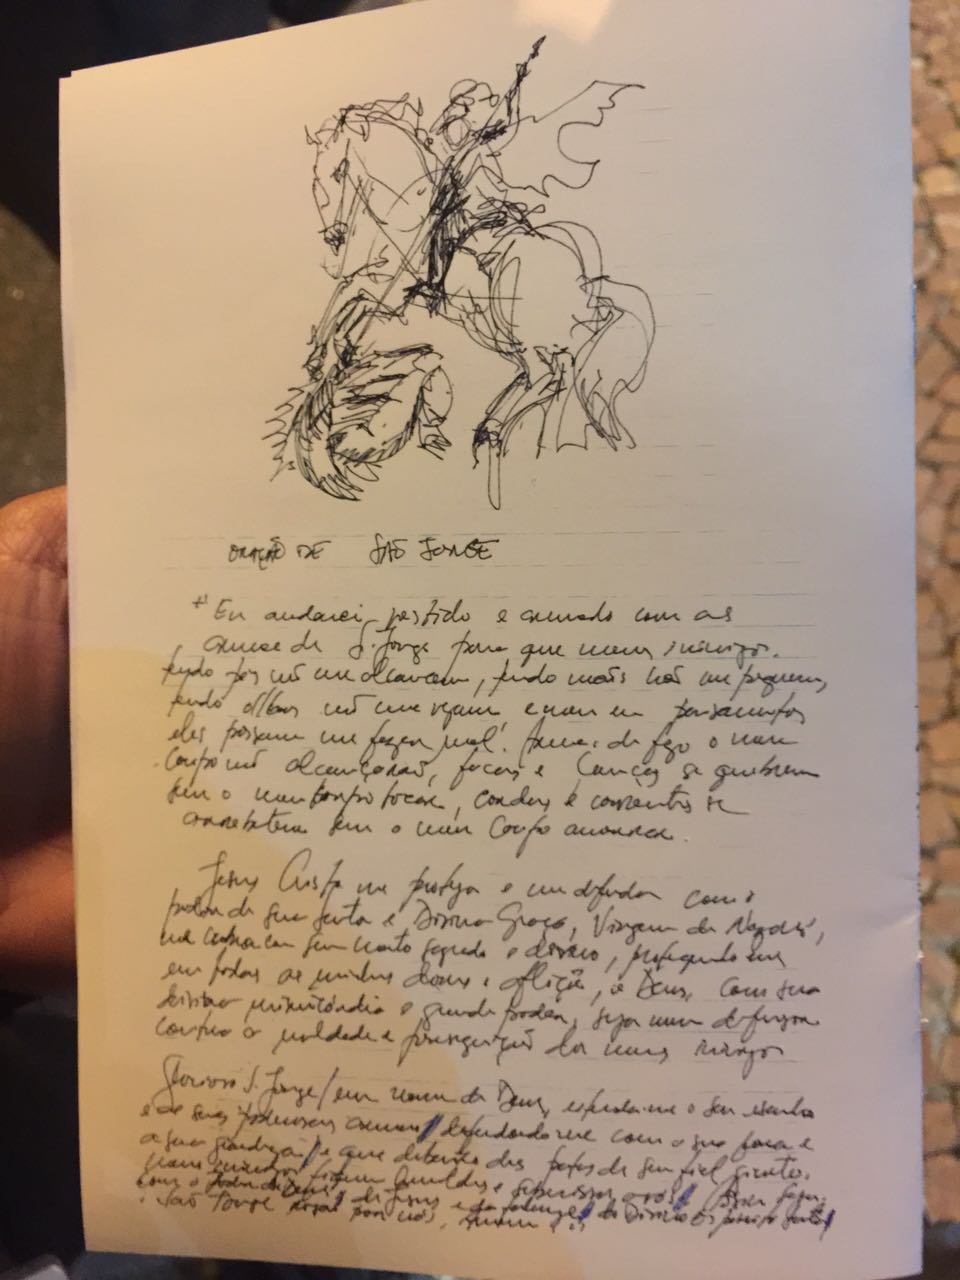 ORAÇÃO DE SÃO JORGE
"Eu andarei vestido e armado com as
armas de S. Jorge para que meus inimigos,
tendo pés não me alcancem, tendo mãos não me peguem,
tendo olhos não me vejam e nem em pensamentos
eles possam me fazer mal. Armas de fogo o meu
corpo não alcançarão, facas e lanças se quebrem
sem o meu corpo tocar, cordas e correntes se
arrebentem sem o meu corpo amarrar.
Jesus Cristo me proteja e me defenda com o
poder de sua santa e Divina Graça, Virgem de Nazaré,
me cubra com seu manto sagrado e divino, protegendo me
em todas as minhas dores e aflições, e Deus, com sua
divina misericórdia e grande poder, seja meu defensor
contra as maldades e perseguições dos meus inimigos
Glorioso S. Jorge/ em nome de Deus, estenda-me o seu escudo
e as suas poderosas armas// defendendo-me com a sua força e
a sua grandeza// e que debaixo das patas de seu fiel ginete,
meus inimigos fiquem humildes e submissos a vós//
com o poder de Deus/ de Jesus e da falange/ do Divino Espírito Santo//
São Jorge Rogai por nós, Amém